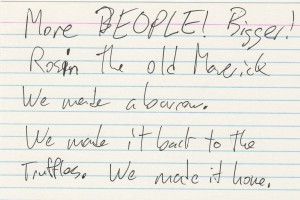 More PEOPLE! Bigger!
Rosin the old Maverick
We made a barrow.
We made it back to the
Truffles. We made it home.